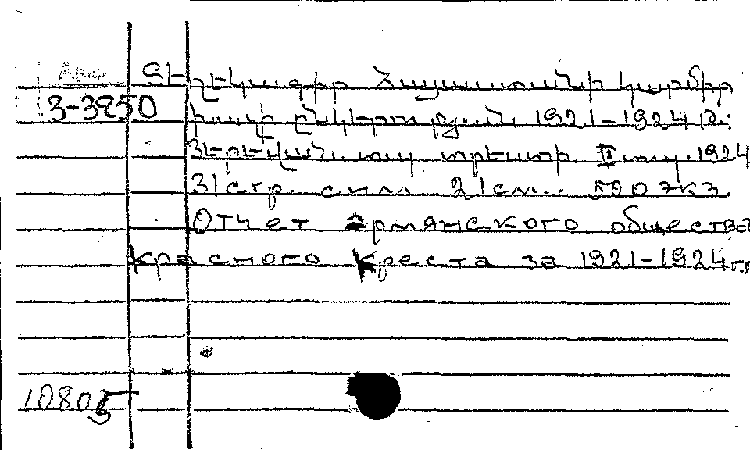 Զեկուցագիր Հայաստանի կարմիր
3-3850 խաչի ընկերության 1921-1924 թ.:
Յերեվան. տպ. տրեստի II տպ. 1924
31 стр. с илл 21 см. 520 экз.
Отчет Армянского общества
красного креста за 1921-1924 г.г.
10805